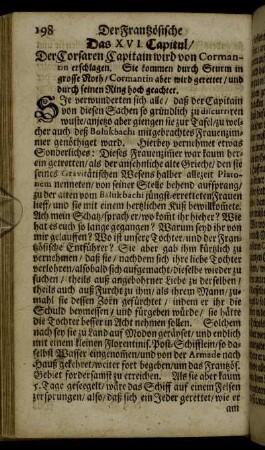 198 Der Frantzösische
Das XVI. Capitul/
Der Corsaren Capitain wird von Corman-
tin erschlagen. Sie kommen durch Sturm in
grosse Noth/ Cormantin aber wird gerettet/ und
durch seinen Ring hoch geachtet.
SJe verwunderten sich alle/ daß der Capitain
von diesen Sachen so gründlich zu discurriren
wuste/ assen/ aber giengen sie zur Tafel/ zu wel
cher auch deß Bolukbachi mitgebrachtes Frauenzim-
mer genöthiget ward. Hierbey vernehmet etwas
Sonderliches: Dieses Frauenzimmer war kaum herr-
ein getretten/ als der ansehnliche alte Grieche/ den sie
seines Gravitätischen Wesens halber allezeit Plato-
nem nenneten/ von seiner Stelle behend auffsprang/
zu der alten vom Bolukbachi jüngst erretteten Frauen
lieff/ und sie mit einem hertzlichen Kuß bewillkomte.
Ach mein Schatz/ sprach er/ wo komt ihr hieher? Wie
hat es euch so lange gegangen? Warum seyd ihr von
mir gelauffen? Wo ist unsere Tochter/ und der Fran-
tzösische Entführer? Sie aber gab ihm kürtzlich zu
vernehmen/ daß sie/ nachdem sich ihre liebe Tochter
verlohren/ alsobald sich aufgemacht/ dieselbe wieder zu
suchen/ theils auß angebohrner Liebe zu derselben/
theils auch auß Furcht zu ihm/ als ihrem Mann/ zu-
mahl sie dessen Zorn gefürchtet/ indem er ihr die
Schuld beymessen/ und fürgeben würde/ sie hätte
die Tochter besser in Acht nehmen sollen. Solchem
nach sey sie zu Land auf Modon gerücket/ und endlich
mit einem kleinen Florentinis. Post-Schifflein/ so da-
selbst Wasser eingenommen/ und von der Armade nach
Hauß gekehret/ weiter fort begeben/ um das Frantzös.
Gebiet fordersamst zu erreichen. Als sie aber kaum
5. Tage gesegelt/ wäre das Schiff auf einem Felsen
zersprungen/ also/ daß sich ein Jeder gerettet/ wie er
am